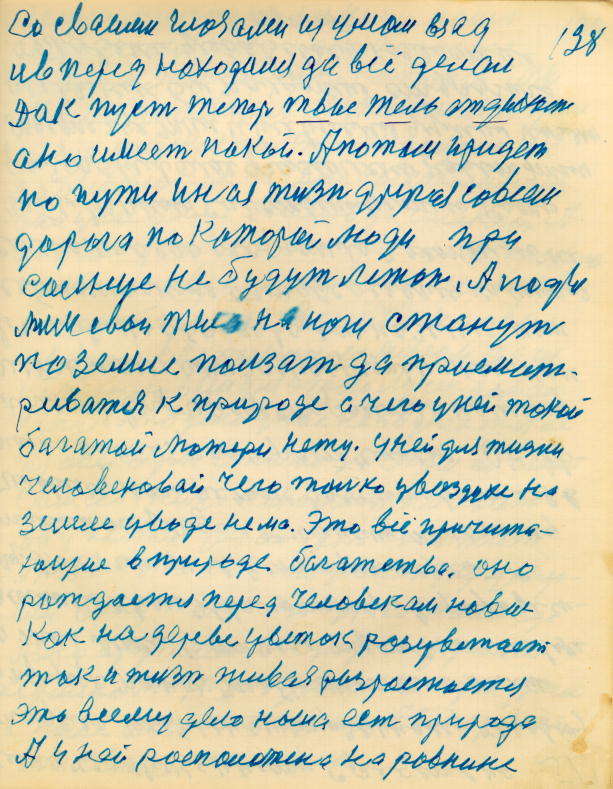 Со своими глозами и умом взад 138
и в перед находился да всё делал
Дак пуст тепер твое тело отдыхает
ано имеет покой. А потом придет
по пути иная жизн другая совсем
дорога по которой люди при
солнце не будут лежат. А подни
мим свои тела на ноги станут
по земле ползат да присмат-
риватся к природе а чего у ней токой
багатой матери нету. у ней для жизни
человековай чего толко у воздухе на
земле у воде нема. Это всё причита-
ющие в природе багатства. оно
рождается перед человекам новы
Как на дереве цветок розцветает
так и жизн живая разростается
Это всему дело ныша ест природа
А у ней росположена на ровнине